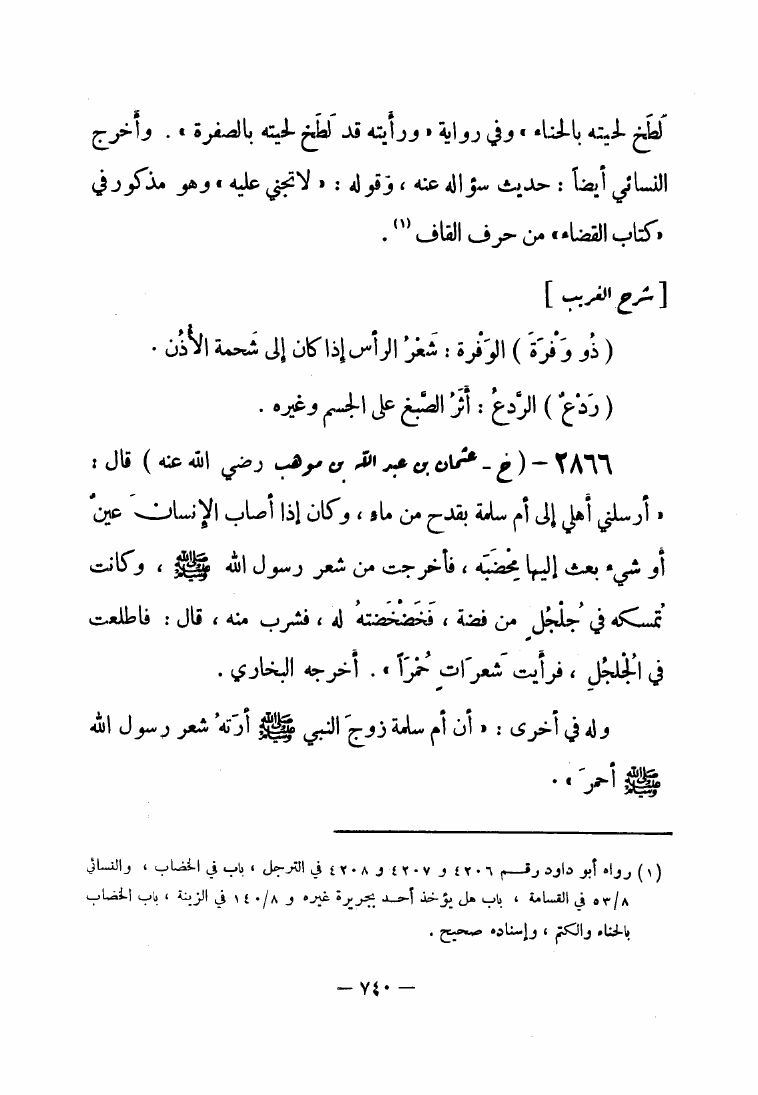 لَطَّخ لحيته بالحناء » وفي رواية « ورأيته قد لَطَّخ لحيته بالصفرة » . وأخرج
النسائي أيضاً : حديث سؤاله عنه ، وقوله : « لا تجني عليه » وهو مذكور في
« كتاب القضاء » من حرف القاف (١) .
[ شرح الغريب ]
( ذُو وَفْرَةَ ) الوَفْرة : شَعْرُ الرأس إذا كان إلى شَحمة الأُذُن .
( رَدْعٌ ) الرَّدعُ : أَثَرُ الصِّبغ على الجسم وغيره .
٢٨٦٦ – ( خ - عثمان بن عبد الله بن موهب رضي الله عنه ) قال :
« أرسلني أهلي إلى أم سلمة بقدح من ماء ، وكان إذا أصاب الإنسانَ عينٌ
أو شيء بعث إليها مِخْضَبَه ، فأخرجت من شعر رسول الله ﷺ ، وكانت
تُمسكه في جُلْجُلٍ من فضة ، فَخَضْخَضَتهُ له ، فشرب منه ، قال : فاطلعت
في الجُلْجُلِ ، فرأيت شَعرَاتٍ حُمْرَاً » . أخرجه البخاري .
وله في أخرى : « أن أم سلمة زوجَ النبي ﷺ أرَتهُ شعر رسول الله
ﷺ أحمرَ » .
(١) رواه أبو داود رقـم ٤٢٠٦ و ٤٢٠٧ و ٤٢٠٨ في الترجل ، باب في الخضاب ، والنسائي
٥٣/٨ في القسامة ، باب هل يؤخذ أحـد بجريرة غيره و ١٤٠/٨ في الزينة ، باب الخضاب
بالحناء والكتم ، وإسناده صحيح .
– ٧٤٠ –